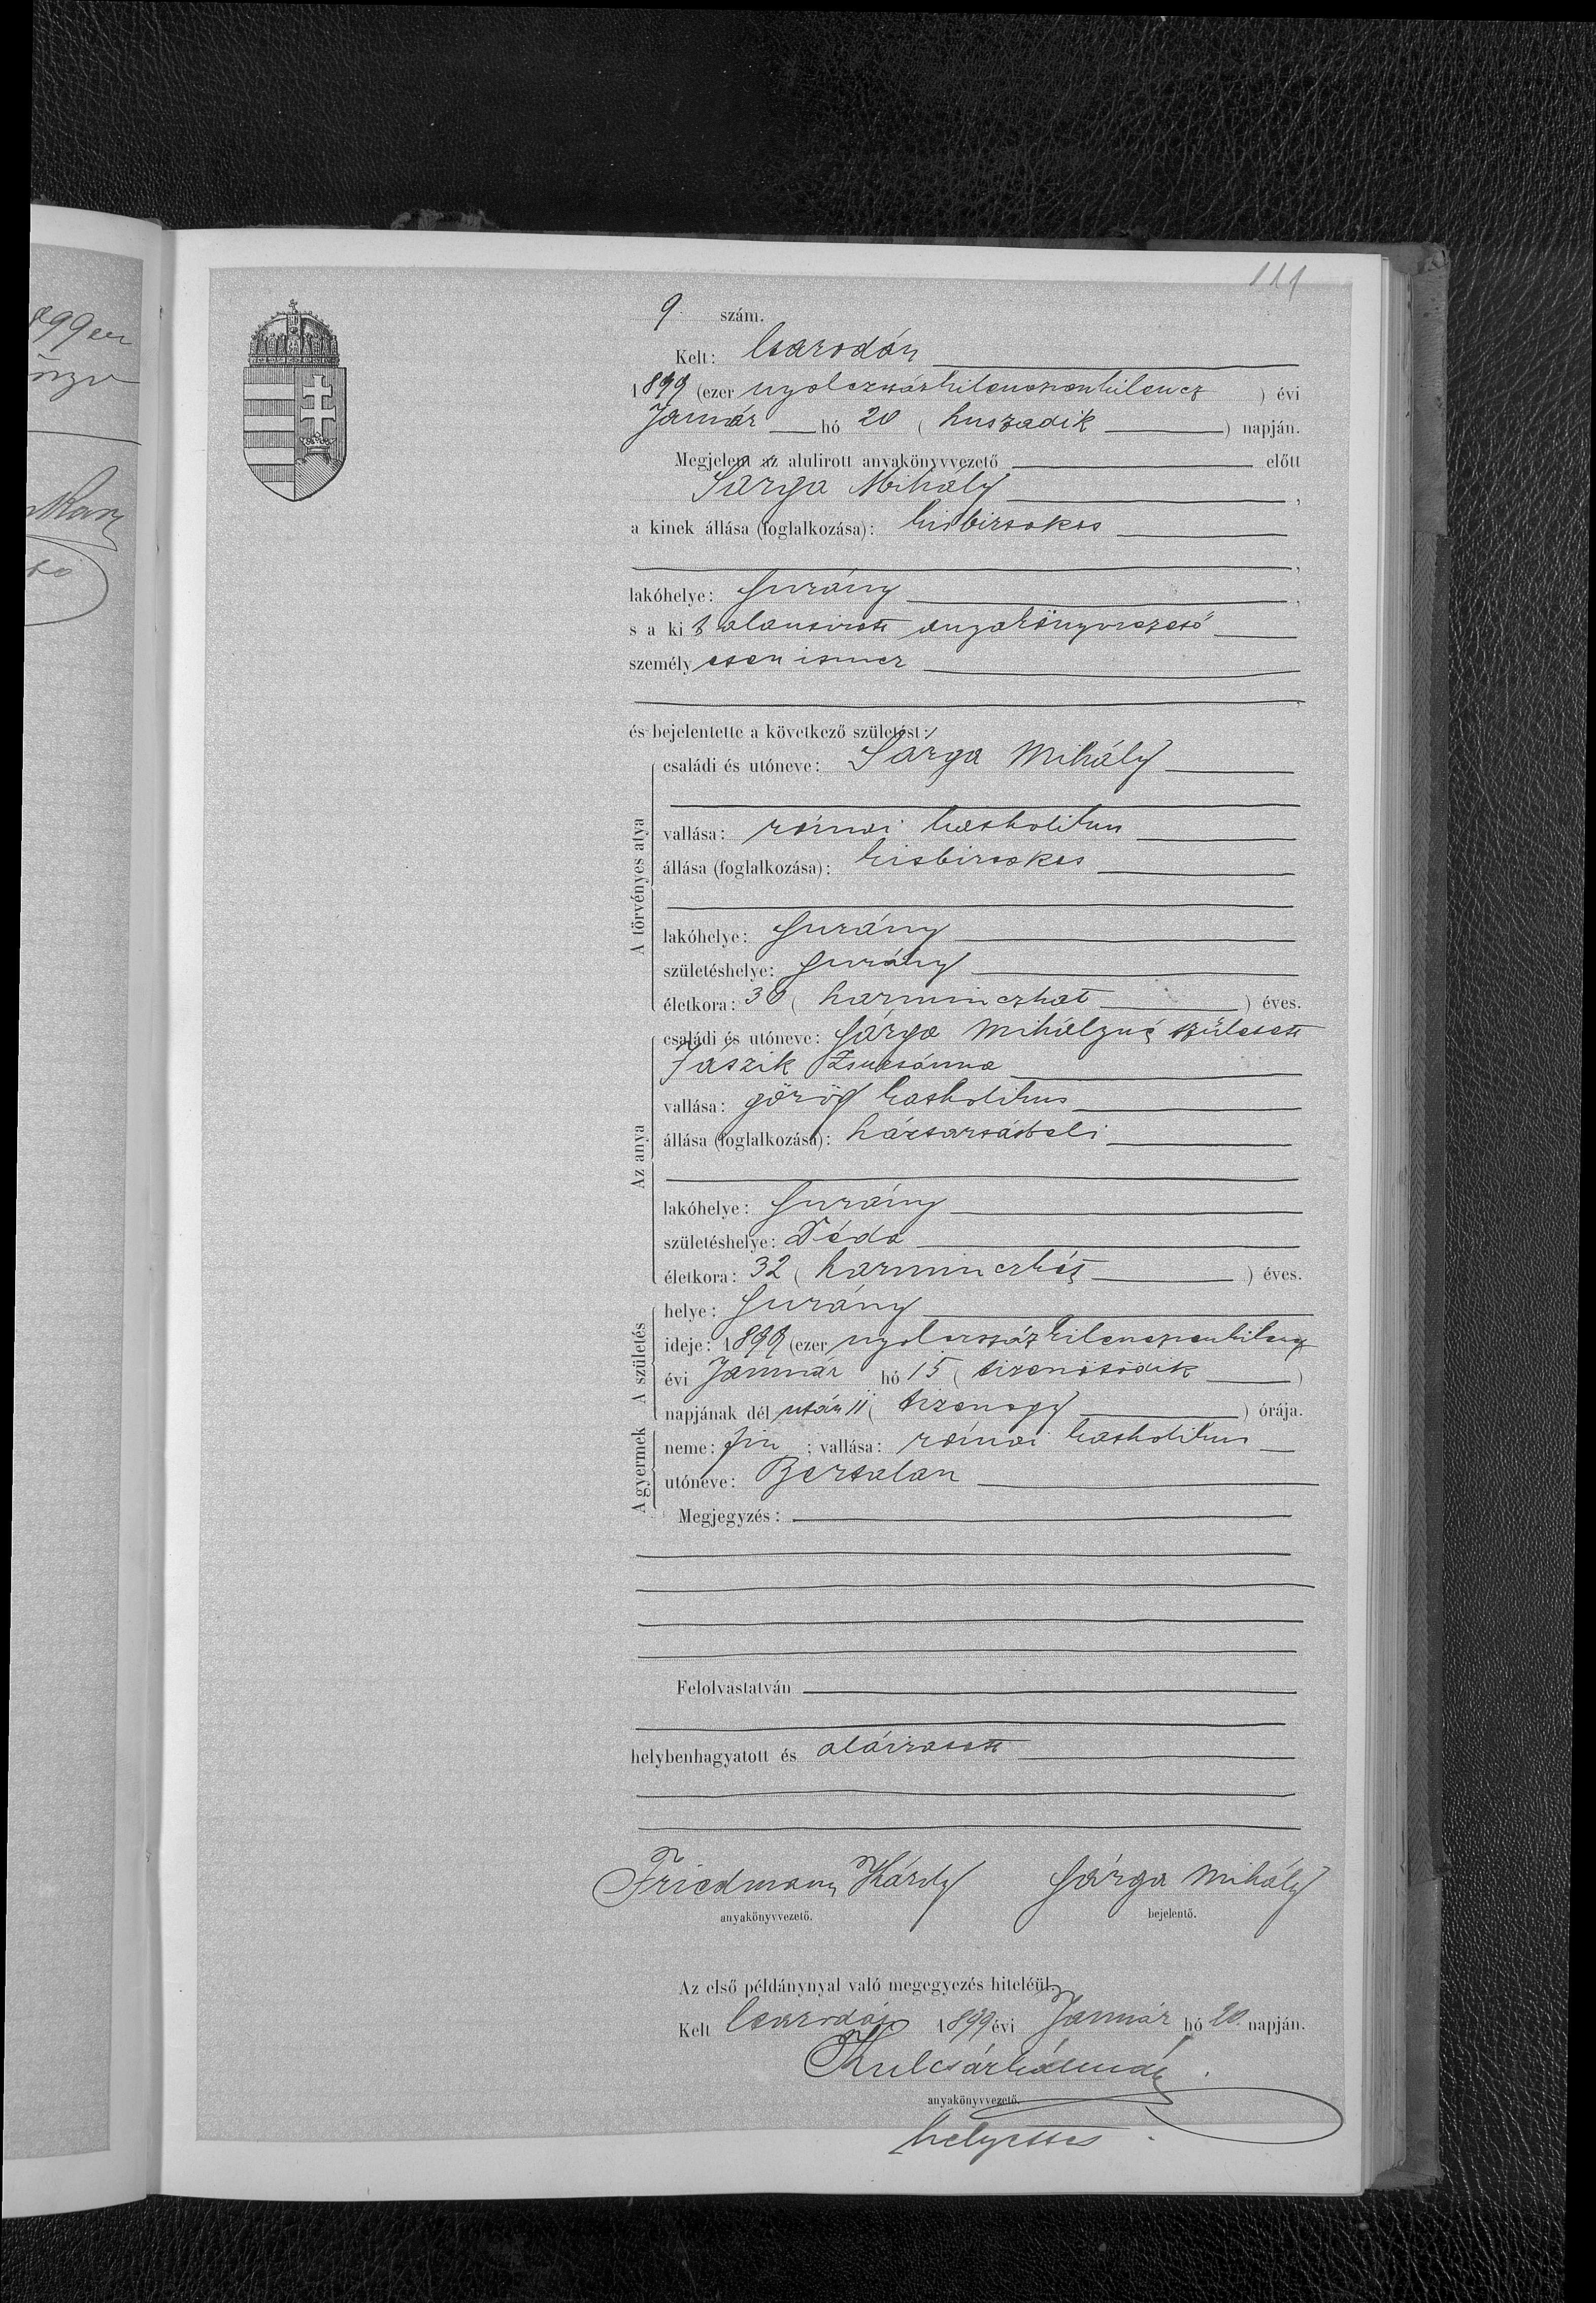 111
9 szám.
Kelt: Csarodán
1899 (ezer nyolczszázkilenczvenkilencz ) évi
Január hó 20 ( huszadik ) napján.
Megjelent az alulirott anyakönyvvezető előtt
Sárga Mihály ,
a kinek állása (foglalkozása): kisbirtokos
,
lakóhelye: Surány ,
s a ki t alantirott anyakönyvvezető
személy esen ismer
és bejelentette a következő születést:
A törvényes atya
családi és utóneve: Sárga Mihály
vallása: római katholikus
állása (foglalkozása): kisbirtokos
lakóhelye: Surány
születéshelye: Surány
életkora: 36 ( harminczhat ) éves.
Az anya
családi és utóneve: Sárga Mihályné született
Jászik Zsuzsánna
vallása: görög katholikus
állása (foglalkozása): háztartásbeli
lakóhelye: Surány
születéshelye: Déda
életkora: 32 ( harminczkét ) éves.
A születés
helye: Surány
ideje: 1899 (ezer nyolczszázkilenczvenkilencz
évi Január hó 15 ( tizenötödik )
napjának dél után 11 ( tizenegy ) órája.
A gyermek
neme: fiu ; vallása: római katholikus
utóneve: Bertalan
Megjegyzés:
Felolvastatván
helybenhagyatott és aláiratott
Friedmann Károly Sárga Mihály
anyakönyvvezető. bejelentő.
Az első példánynyal való megegyezés hiteléül.
Kelt Csarodán 1899 évi Január hó 20 napján.
Kulcsár Kálmán
anyakönyvvezető.
helyettes
899 en